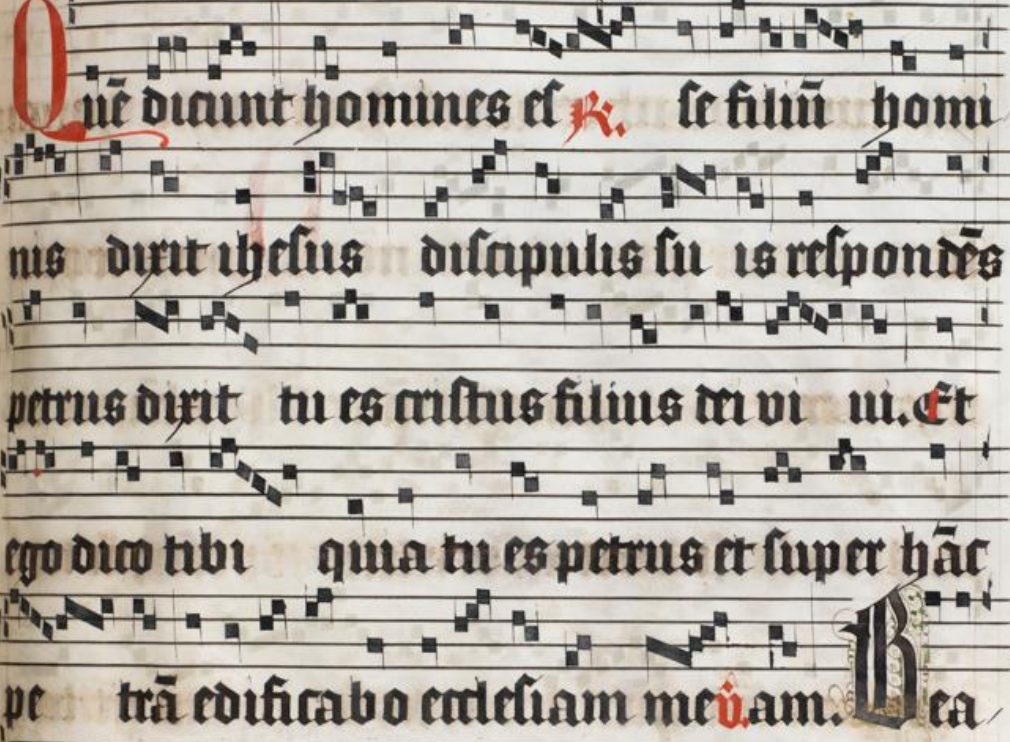 Quē dicunt homines eſ R. ſe filiū homi
nis dixit iheſus diſcipulis ſu is reſpondēs
petrus dixit tu es criſtus filius dei vi ui. Et
ego dico tibi quia tu es petrus et ſuper hāc
pe trā edificabo eccleſiam me v. am. Bea